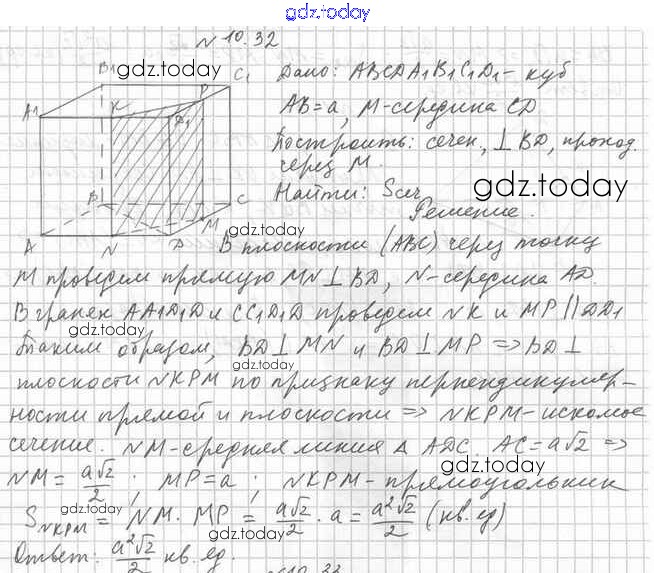 gdz.today
№ 10.32
B1 gdz.today C1 Дано: ABCDA1B1C1D1 - куб
A1 K P D1 AB = a, M - середина CD
Построить: сечен., ⊥ BD, проход.
через M.
B C Найти: Sсеч gdz.today
gdz.today Решение.
A N D M В плоскости (ABC) через точку
M проведем прямую MN ⊥ BD, N - середина AD.
В гранях AA1D1D и CC1D1D проведем NK и MP || DD1
gdz.today
Таким образом, BD ⊥ MN и BD ⊥ MP ⇒ BD ⊥
gdz.today
плоскости NKPM по признаку перпендикуляр-
ности прямой и плоскости ⇒ NKPM - искомое
сечение. NM - средняя линия △ ADC. AC = a√2 ⇒
gdz.today
NM = a√2/2 ; MP = a ; NKPM - прямоугольник
gdz.today
S NKPM = NM · MP = a√2/2 · a = a²√2/2 (кв. ед)
gdz.today
Ответ: a²√2/2 кв. ед.
gdz.today
№ 10.33